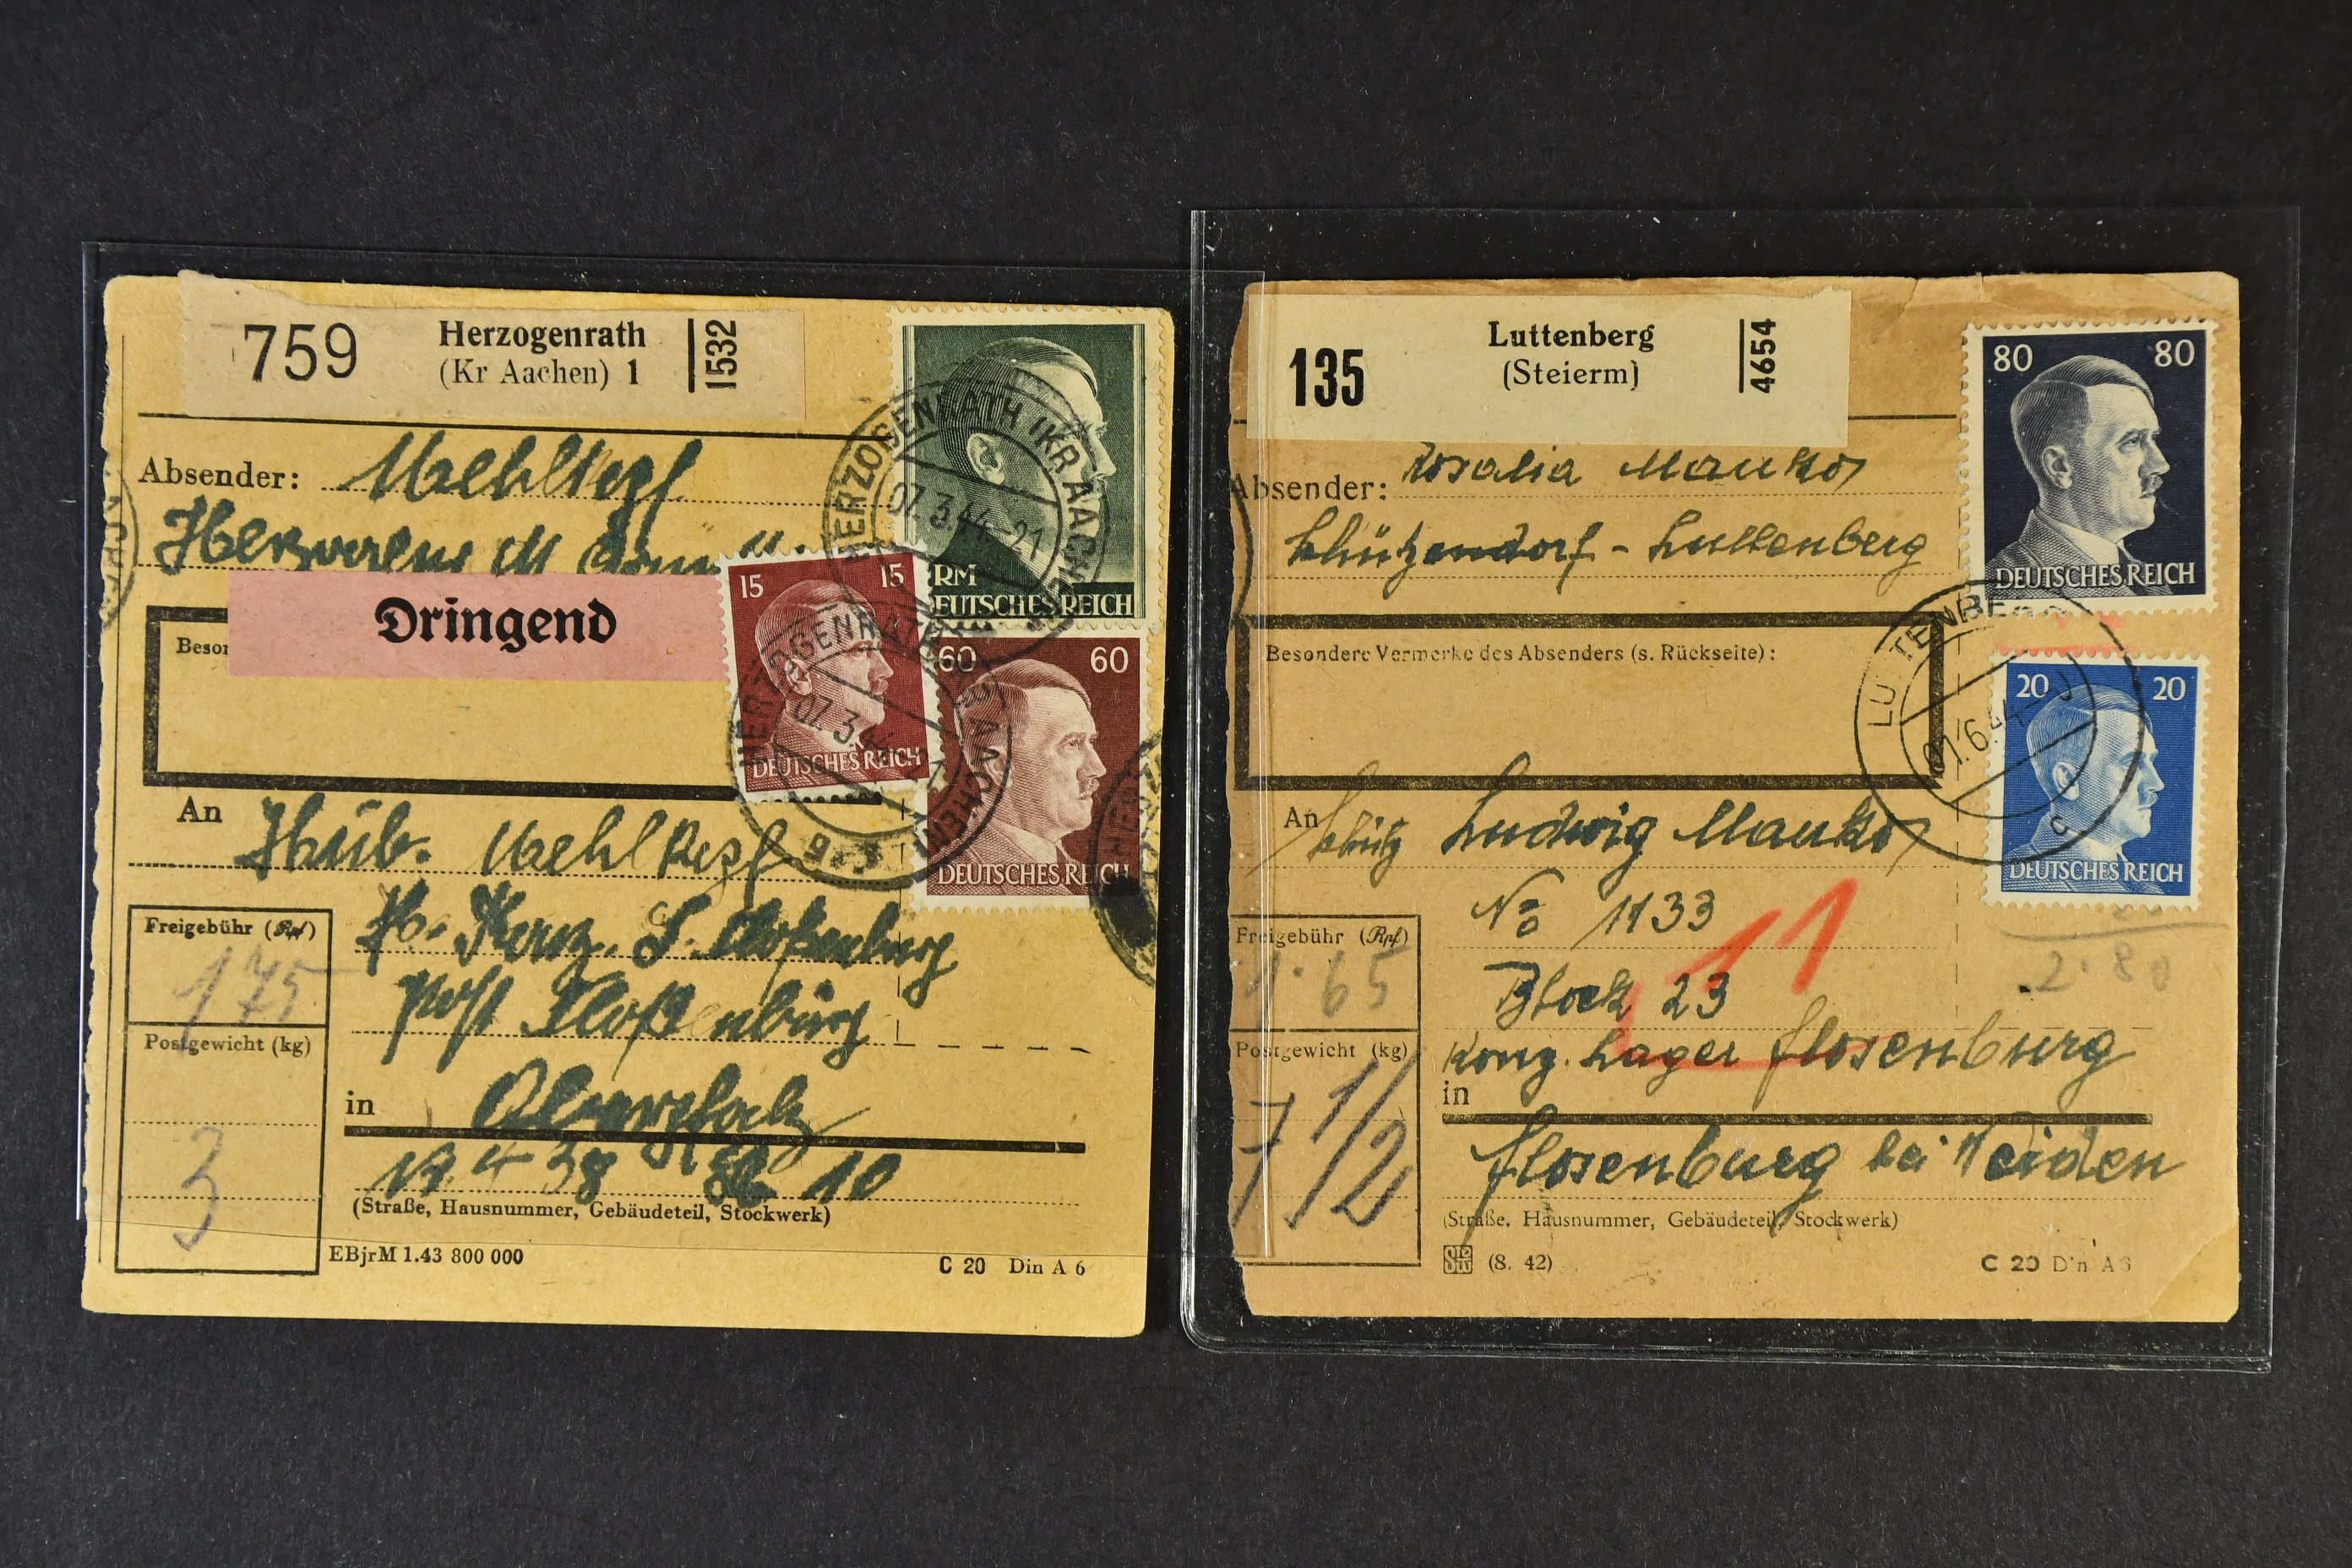 759
Herzogenrath
(Kr Aachen) 1
1532
Absender:
Dringend
Beson
RM
DEUTSCHES REICH
HERZOGENRATH (KR AACHEN)
07.3.44-21
15 15
DEUTSCHES REICH
60 60
DEUTSCHES REICH
HERZOGENRATH (KR AACHEN)
07.3.44
An Hüb.
Freigebühr (Rpf)
175
Post Floßenbürg
Postgewicht (kg)
3
in
10
(Straße, Hausnummer, Gebäudeteil, Stockwerk)
EBjrM 1.43 800 000
C 20 Din A 6
135
Luttenberg
(Steierm)
4654
80 80
DEUTSCHES REICH
Absender: Rosalia Mauko
Schützendorf - Luttenberg
Besondere Vermerke des Absenders (s. Rückseite):
LUTTENBERG
01.6.44
c
20 20
DEUTSCHES REICH
An Schütz Ludwig Mauko
No 1133
11
Freigebühr (Rpf)
1.65
2.80
Block 23
Postgewicht (kg)
7 1/2
Konz. Lager Flosenburg
in
Flosenburg bei Weiden
(Straße, Hausnummer, Gebäudeteil, Stockwerk)
(8. 42)
C 20 Din A 6